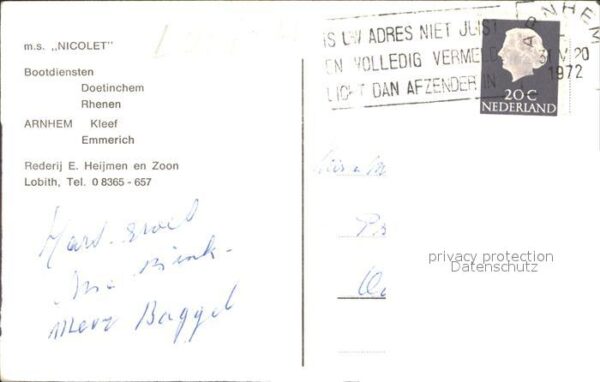 m.s. „NICOLET"
Bootdiensten
Doetinchem
Rhenen
ARNHEM Kleef
Emmerich
Rederij E. Heijmen en Zoon
Lobith, Tel. 0 8365 - 657
Hart. groet
Mevr Baggel
IS UW ADRES NIET JUIST
EN VOLLEDIG VERMELD
LICHT DAN AFZENDER IN
ARNHEM
20
1972
20 C
NEDERLAND
privacy protection
Datenschutz